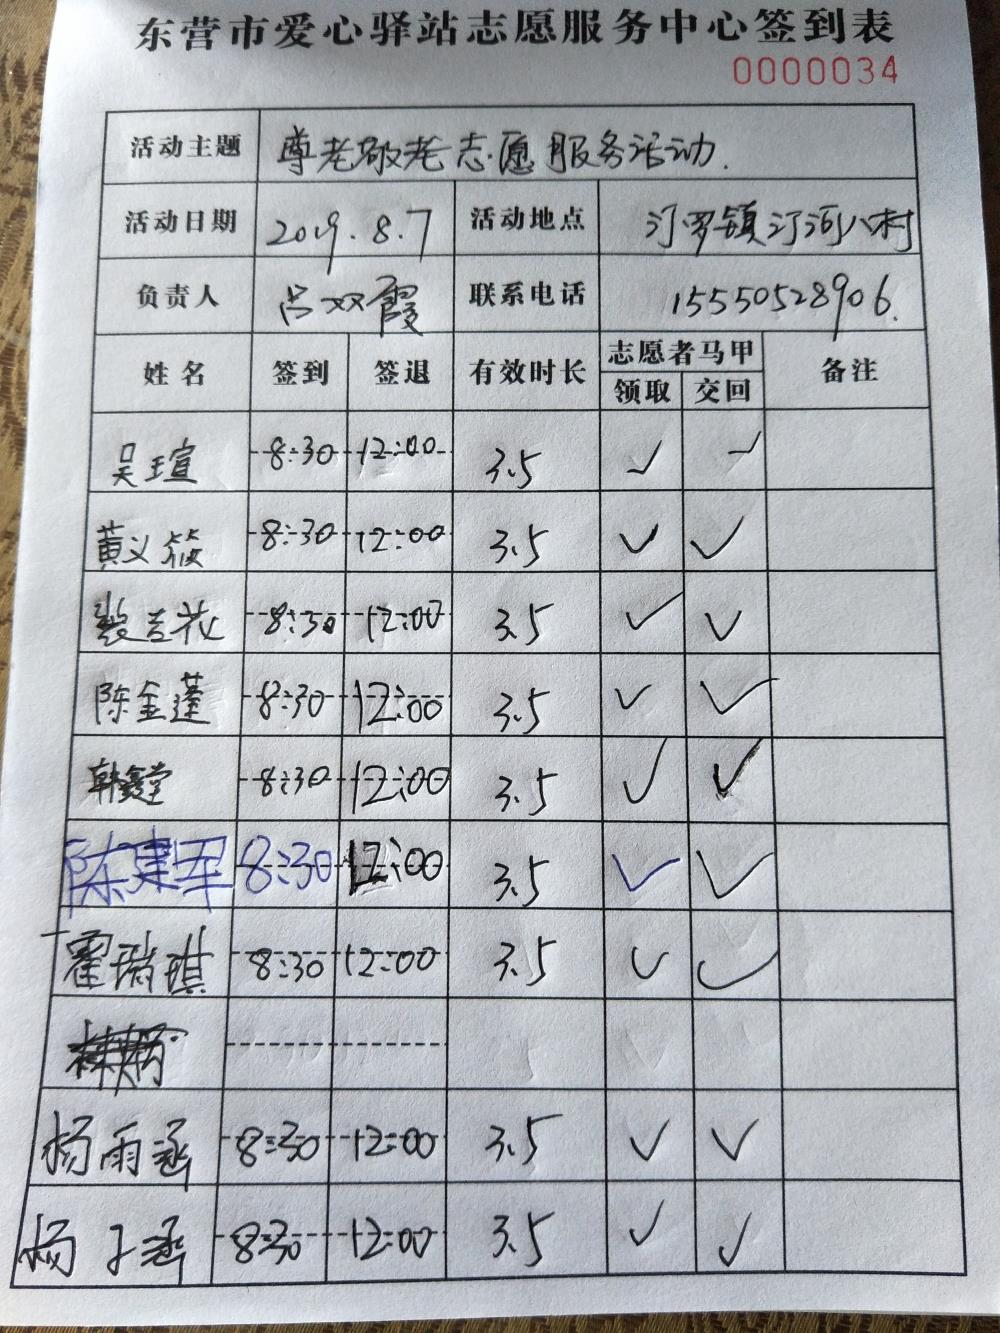 东营市爱心驿站志愿服务中心签到表
0000034
活动主题 尊老敬老志愿服务活动.
活动日期 2019.8.7 活动地点 汀罗镇汀河八村
负责人 吕双霞 联系电话 15550528906.
姓名 签到 签退 有效时长 志愿者马甲 备注
领取 交回
吴瑄 8:30 12:00 3.5 ✓ ✓
黄义筱 8:30 12:00 3.5 ✓ ✓
裴吉花 8:30 12:00 3.5 ✓ ✓
陈金蓬 8:30 12:00 3.5 ✓ ✓
韩鑫堂 8:30 12:00 3.5 ✓ ✓
陈建军 8:30 12:00 3.5 ✓ ✓
霍瑞琪 8:30 12:00 3.5 ✓ ✓
杨雨涵 8:30 12:00 3.5 ✓ ✓
杨子涵 8:30 12:00 3.5 ✓ ✓